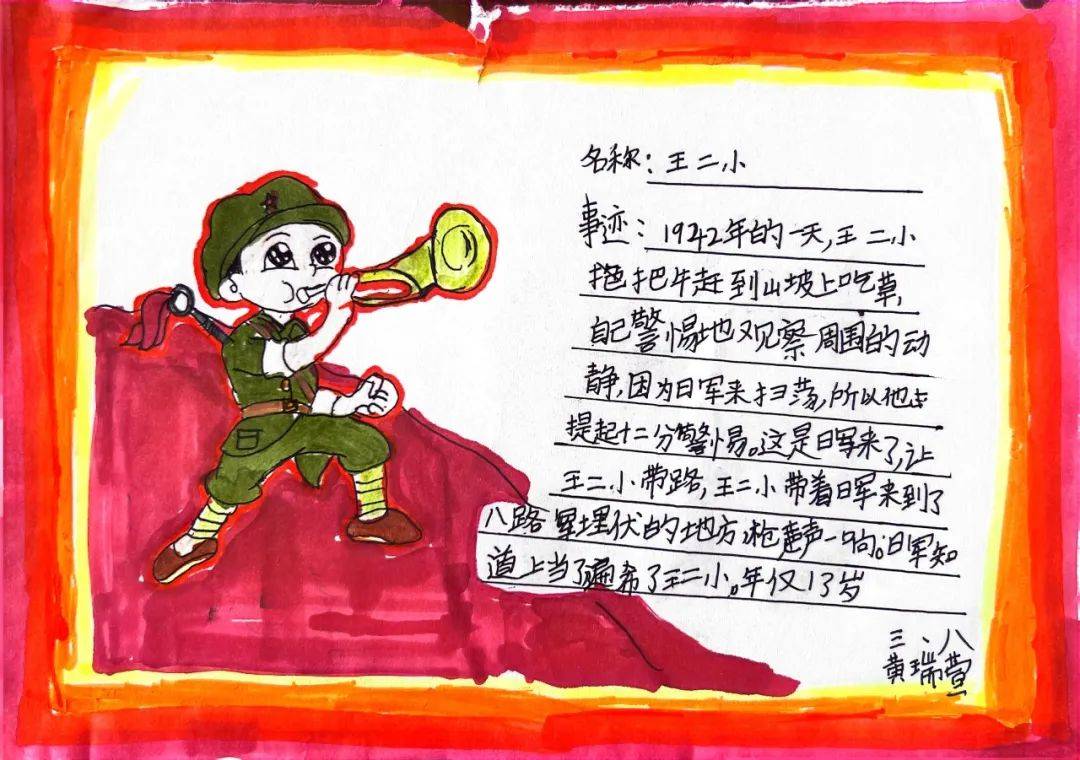 名称：王二小
事迹：1942年的一天,王二小
把牛赶到山坡上吃草,
自己警惕地观察周围的动
静,因为日军来扫荡,所以他
提起十二分警惕。这是日军来了,让
王二小带路,王二小带着日军来到了
八路军埋伏的地方,枪声一响。日军知
道上当了了王二小。年仅13岁
三、八
黄瑞萱